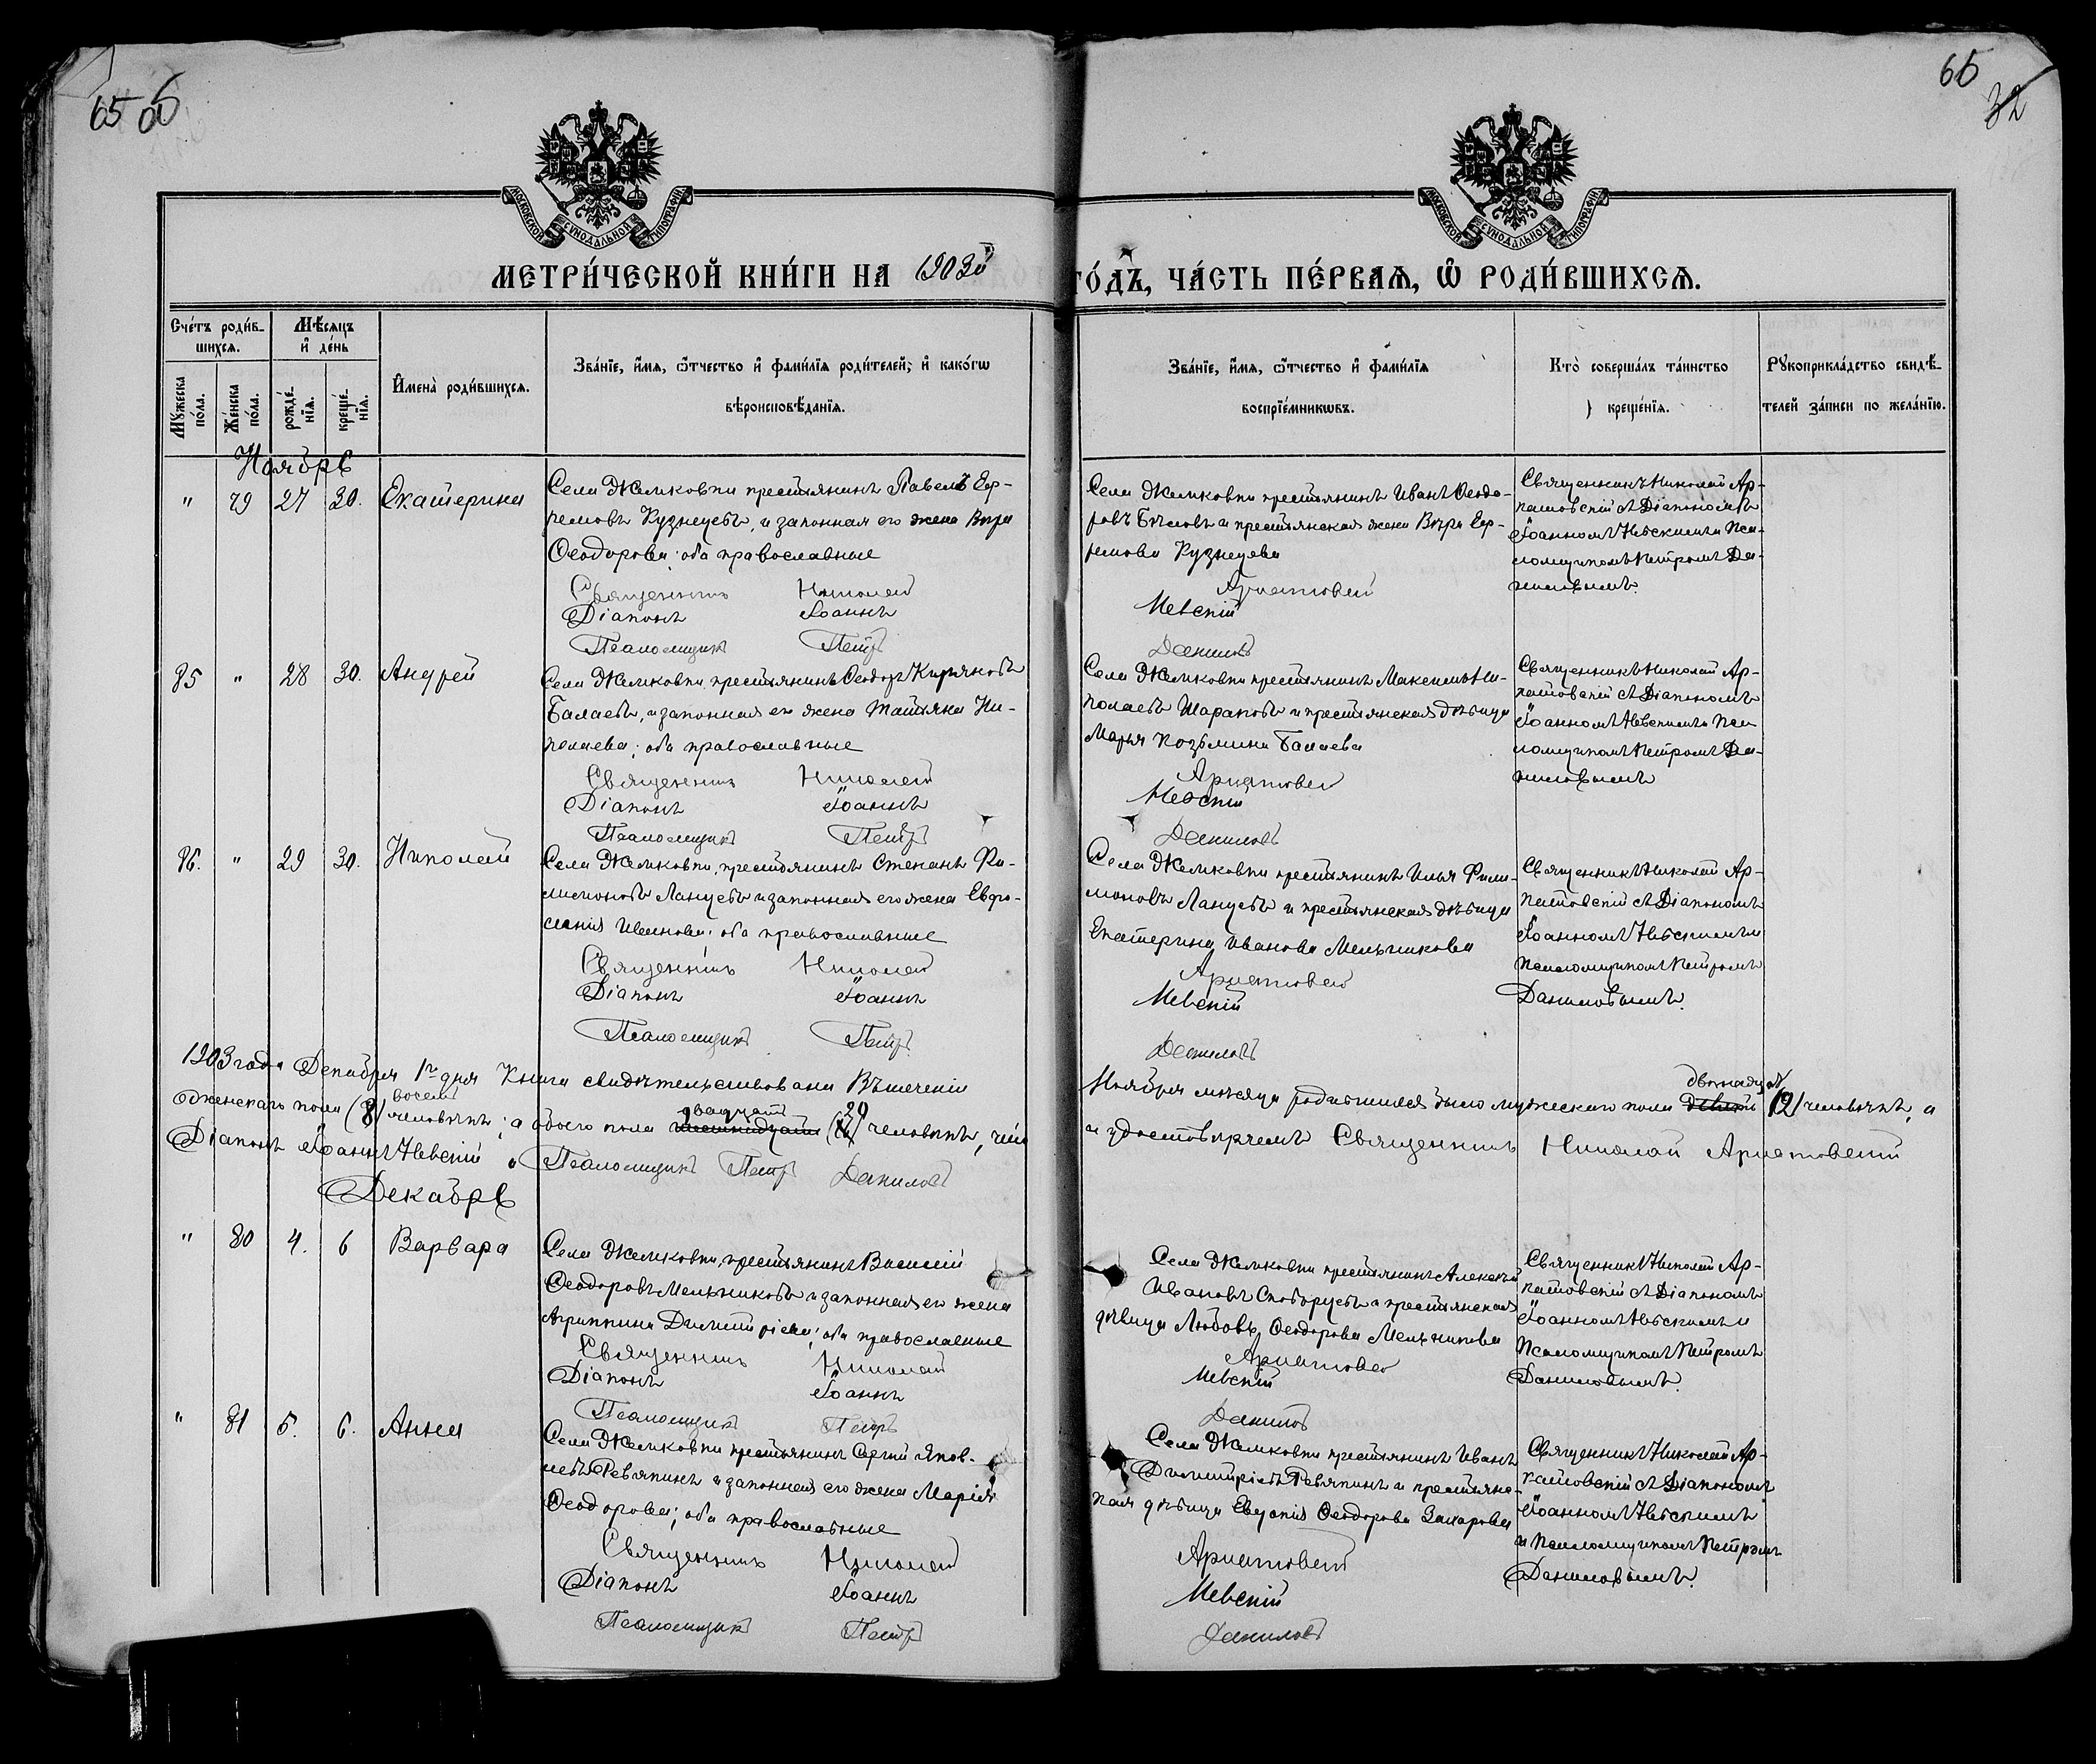 65 66
66
32
МОСКОВСКОЙ СУНОДАЛЬНОЙ ТИПОГРАФІИ.
МОСКОВСКОЙ СУНОДАЛЬНОЙ ТИПОГРАФІИ.
МЕТРИ́ЧЕСКОЙ КНИ́ГИ НА 1903й ГО́ДЪ, ЧА́СТЬ ПЕ́РВАѦ, Ѽ РОДИ́ВШИХСѦ.
Сче́тъ роди́вшихсѧ.
Мꙋжеска по́ла.
Же́нска по́ла.
Мѣ́сѧцъ и҆ де́нь
рожде́нїѧ.
креще́нїѧ.
И҆мена̀ роди́вшихсѧ.
Зва́нїе, и҆́мѧ, ѻ҆́тчество и҆ фами́лїѧ роди́телей; и҆ како́гѡ
вѣроисповѣ́данїѧ.
Зва́нїе, и҆́мѧ, ѻ҆́тчество и҆ фами́лїѧ
воспрїе́мникѡвъ.
Кто̀ соверша́лъ та́инство
креще́нїѧ.
Рꙋкоприкла́дство свидѣ́-
телей за́писи по жела́нїю.
Ноябрь
" 79 27 30. Екатерина
Села Жемковки крестьянинъ Павелъ Еф-
ремовъ Кузнецовъ, и законная его жена Вера
Ѳеодорова; оба православные
Священникъ Николай
Діаконъ Іоаннъ
Псаломщикъ Петръ
Села Жемковки крестьянинъ Иванъ Ѳеодо-
ровъ Бѣловъ и крестьянская жена Вѣра Еф-
ремова Кузнецова
Архатовскій
Невскій
Даниловъ
Священникъ Николай Ар-
хатовскій съ Діакономъ
Іоанномъ Невскимъ и Пса-
ломщикомъ Петромъ Да-
ниловымъ.
85 " 28 30. Андрей
Села Жемковки, крестьянинъ Ѳеодоръ Кирьяновъ
Балаевъ, и законная его жена Татьяна Ни-
колаева; оба православные
Священникъ Николай
Діаконъ Іоаннъ
Псаломщикъ Петръ
Села Жемковки крестьянинъ Максимъ Ни-
колаевъ Шараповъ и крестьянская дѣвица
Марья Козьмина Балаева
Архатовскій
Невскій
Даниловъ
Священникъ Николай Ар-
хатовскій съ Діакономъ
Іоанномъ Невскимъ и Пса-
ломщикомъ Петромъ Да-
ниловымъ
86. " 29 30. Николай
Села Жемковки, крестьянинъ Степанъ Фи-
лимоновъ Ланцевъ и законная его жена Евфро-
синія Иванова; оба православные
Священникъ Николай
Діаконъ Іоаннъ
Псаломщикъ Петръ
Села Жемковки крестьянинъ Илья Фили-
моновъ Ланцевъ и крестьянская дѣвица
Екатерина Иванова Мельникова
Архатовскій
Невскій
Даниловъ
Священникъ Николай Ар-
хатовскій съ Діакономъ
Іоанномъ Невскимъ и
Псаломщикомъ Петромъ
Даниловымъ.
1903 года Декабря 1го дня Книга свидѣтельствована Въ теченіи Ноября мѣсяца родившихся было мужескаго пола двенадцать (12) человѣкъ, а
женскаго пола (8) восемь человѣкъ; а обоего пола двадцать (20) человѣкъ, чѣмъ и удостовѣряемъ Священникъ Николай Архатовскій
Діаконъ Іоаннъ Невскій Псаломщикъ Петръ Даниловъ
Декабрь
" 80 4. 6 Варвара
Села Жемковки, крестьянинъ Василій
Ѳеодоровъ Мельниковъ и законная его жена
Агриппина Димитріева; оба православные
Священникъ Николай
Діаконъ Іоаннъ
Псаломщикъ Петръ
Села Жемковки крестьянинъ Алексѣй
Ивановъ и крестьянская
дѣвица Любовь Ѳеодорова Мельникова
Архатовскій
Невскій
Даниловъ
Священникъ Николай Ар-
хатовскій съ Діакономъ
Іоанномъ Невскимъ и
Псаломщикомъ Петромъ
Даниловымъ.
" 81 5. 6. Анна
Села Жемковки крестьянинъ Сергій Яков-
левъ Ревякинъ и законная его жена Марія
Ѳеодорова; оба православные
Священникъ Николай
Діаконъ Іоаннъ
Псаломщикъ Петръ
Села Жемковки крестьянинъ Иванъ
Димитріевъ Ревякинъ и крестьянс-
кая дѣвица Ѳеодорова Захарова
Архатовскій
Невскій
Даниловъ
Священникъ Николай Ар-
хатовскій съ Діакономъ
Іоанномъ Невскимъ
и Псаломщикомъ Петромъ
Даниловымъ.